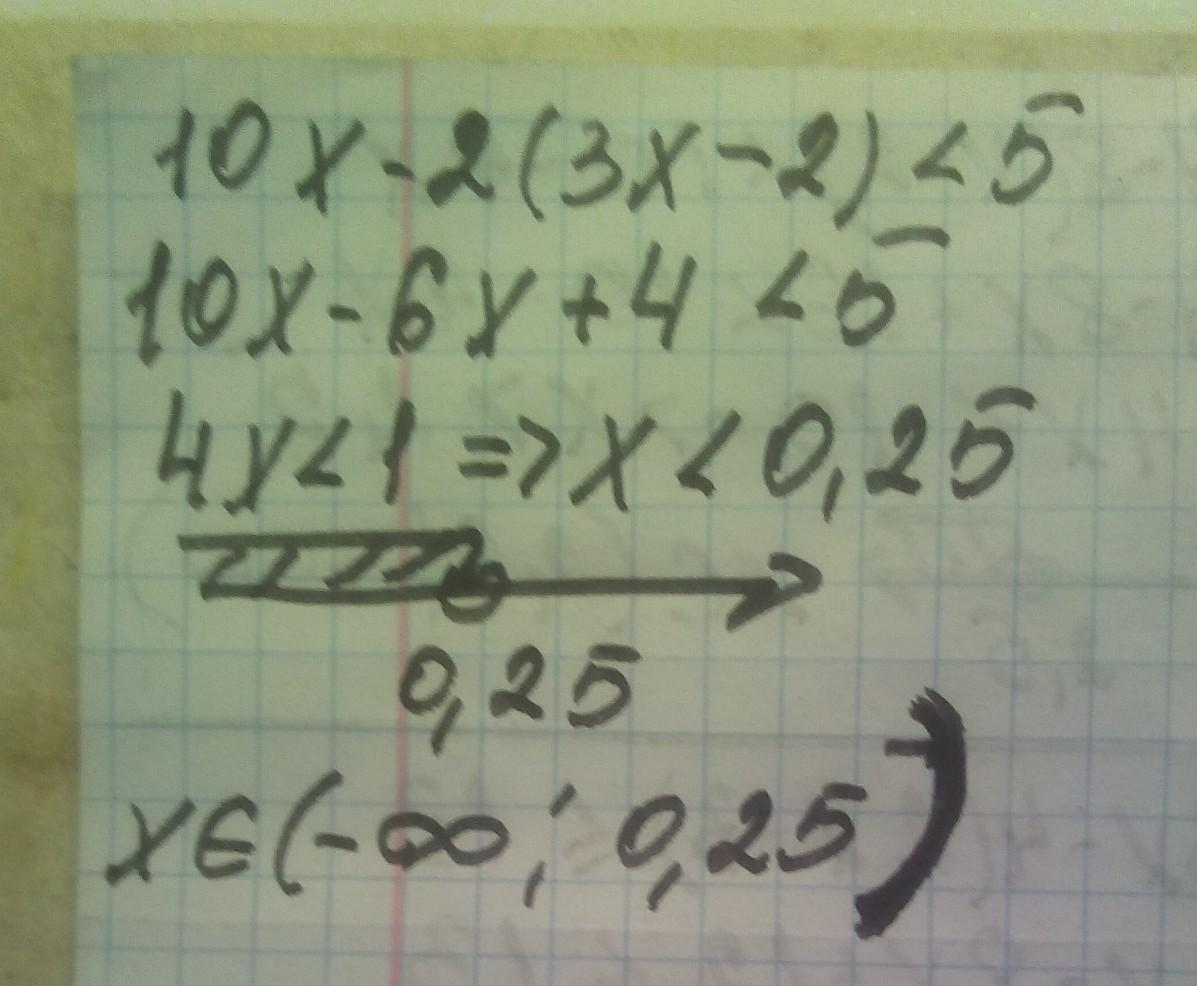 10x-2(3x-2)<5
10x-6x+4<5
4x<1=>x<0,25
0,25
x∈(-∞;0,25)